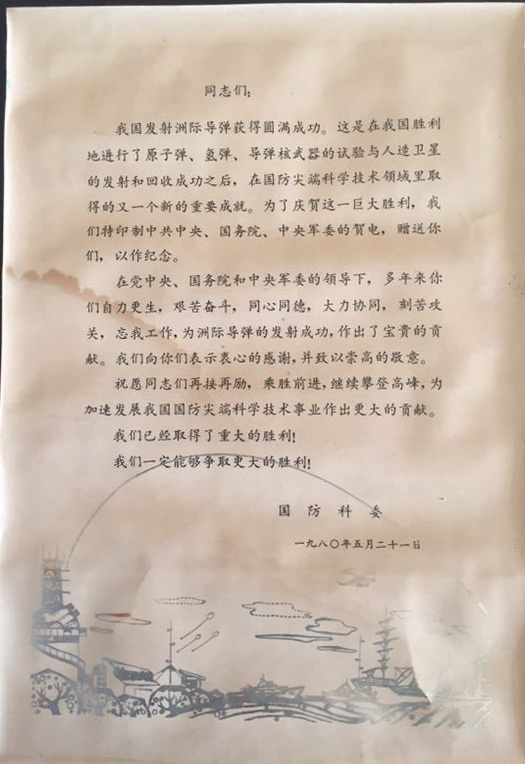 同志们：
我国发射洲际导弹获得圆满成功。这是在我国胜利
地进行了原子弹、氢弹、导弹核武器的试验与人造卫星
的发射和回收成功之后，在国防尖端科学技术领域里取
得的又一个新的重要成就。为了庆贺这一巨大胜利，我
们特印制中共中央、国务院、中央军委的贺电，赠送你
们，以作纪念。
在党中央、国务院和中央军委的领导下，多年来你
们自力更生，艰苦奋斗，同心同德，大力协同，刻苦攻
关，忘我工作，为洲际导弹的发射成功，作出了宝贵的贡
献。我们向你们表示衷心的感谢，并致以崇高的敬意。
祝愿同志们再接再励，乘胜前进，继续攀登高峰，为
加速发展我国国防尖端科学技术事业作出更大的贡献。
我们已经取得了重大的胜利！
我们一定能够争取更大的胜利！
国防科委
一九八〇年五月二十一日